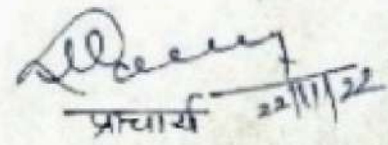 प्राचार्य 22/11/22